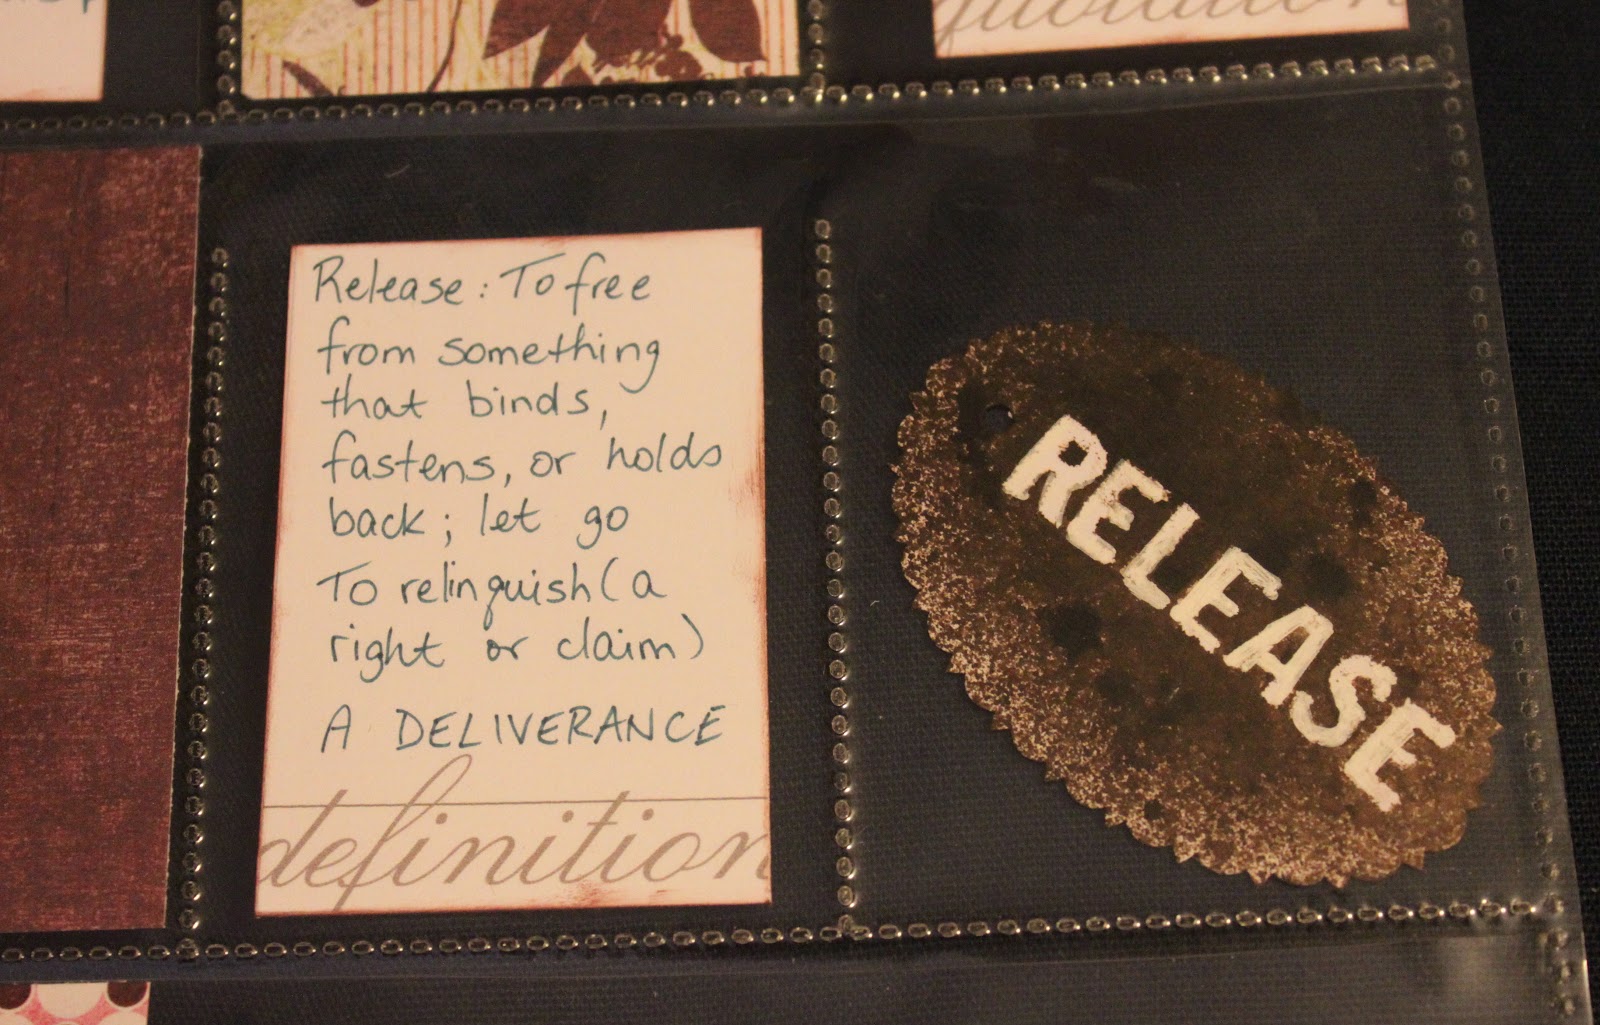 quotation
Release: To free
from something
that binds,
fastens, or holds
back; let go
To relinquish (a
right or claim)
A DELIVERANCE
definition
RELEASE